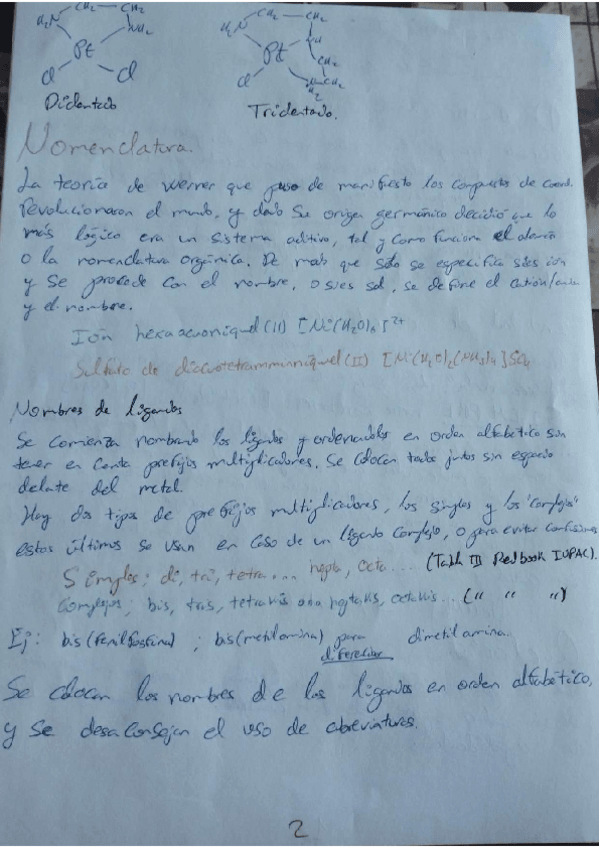 H₂N CH₂ — CH₂ NH₂ Pt Cl Cl
Didentado
H₂N CH₂ — CH₂ Pt Cl CH₂ CH₂
Tridentado.
Nomenclatura.
La teoría de Werner que puso de manifiesto los compuestos de coord.
revolucionaron el mundo, y dado su origen germánico decidió que lo
más lógico era un sistema aditivo, tal y como funciona el alemán
o la nomenclatura orgánica. De modo que sólo se especifica si es ión
y se procede con el nombre, o si es sal, se define el catión/anión
y el nombre.
Ión hexaacuoniquel(II) [Ni(H₂O)₆]²⁺
Sulfato de diacuotetramminniquel(II) [Ni(H₂O)₂(NH₃)₄]SO₄
Nombres de ligandos
Se comienza nombrando los ligandos y ordenandolos en orden alfabético sin
tener en cuenta prefijos multiplicadores. Se colocan todos juntos sin espacio
delate del metal.
Hay dos tipos de prefijos multiplicadores, los simples y los "complejos"
estos últimos se usan en caso de un ligando complejo, o para evitar confusiones
Simples; di, tri, tetra... hepta, octa... (Tabla III Redbook IUPAC).
Complejos; bis, tris, tetrakis heptakis, octakis... (" " ")
Ej: bis(fenilfosfina) ; bis(metilamina) para dimetilamina.
diferenciar
Se colocan los nombres de los ligandos en orden alfabético,
y se desaconsejan el uso de abreviaturas.
2